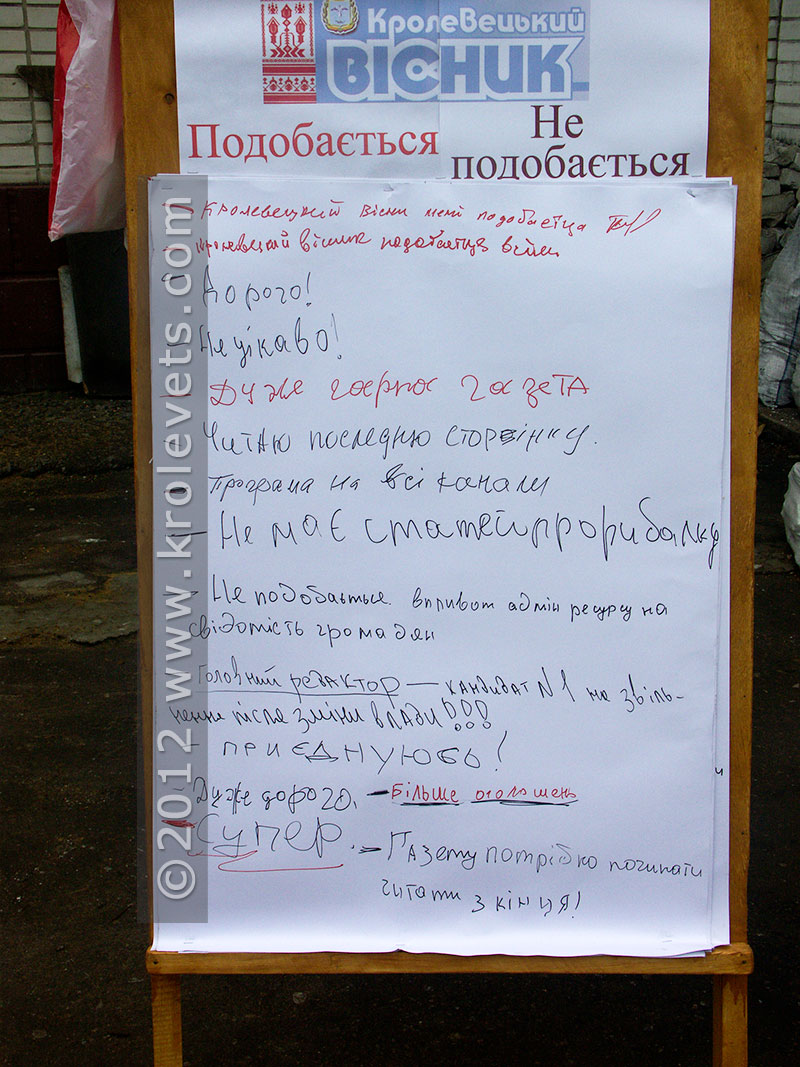 Кролевецький
ВІСНИК
Подобається
Не
подобається
- Кролевецкий вісни мені подобаєтца
- кролевецкий вісник подобаєтця всім
- Дорого!
- Не цікаво!
- Дуже гарна газета
- Читаю последню сторінку.
- Програма на всі канали
- Не має статей про рибалку
- Не подобається вплив от адмін ресурсу на
свідомість громадян
- Головний редактор - кандидат №1 на звіль-
нення після зміни влади!!!
- ПРИЄДНУЮСЬ!
- Дуже дорого. - Більше оголошень
- Супер. - Газету потрібно починати
читати з кінця!
©2012 www.krolevets.com